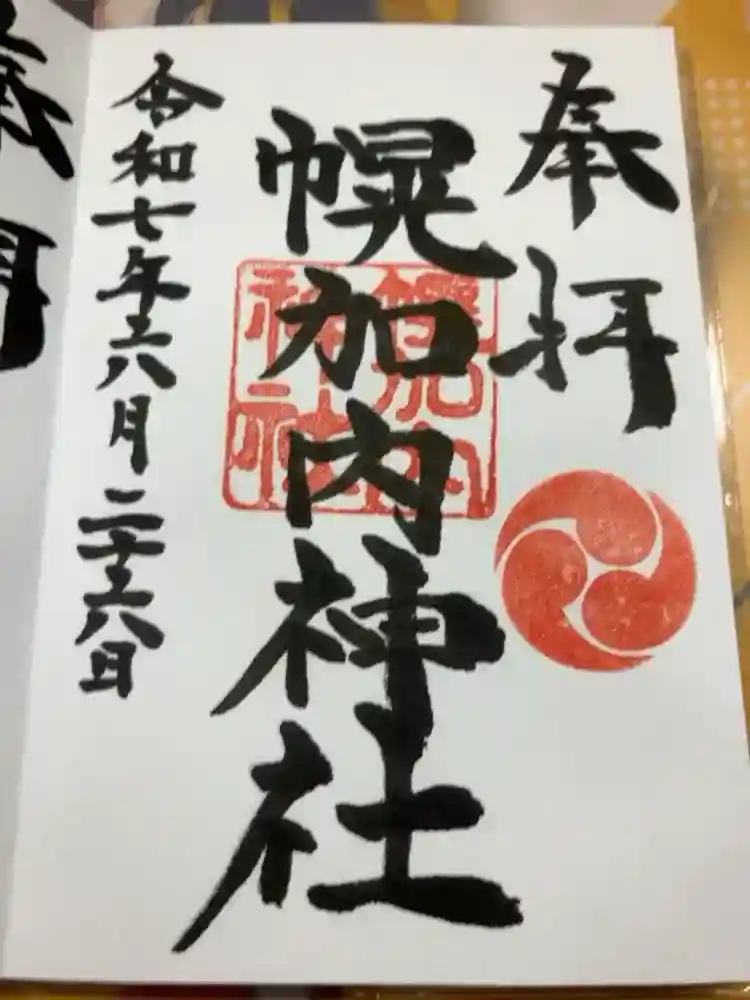 奉拝
幌加内神社
幌加内
神社
令和七年六月二十六日